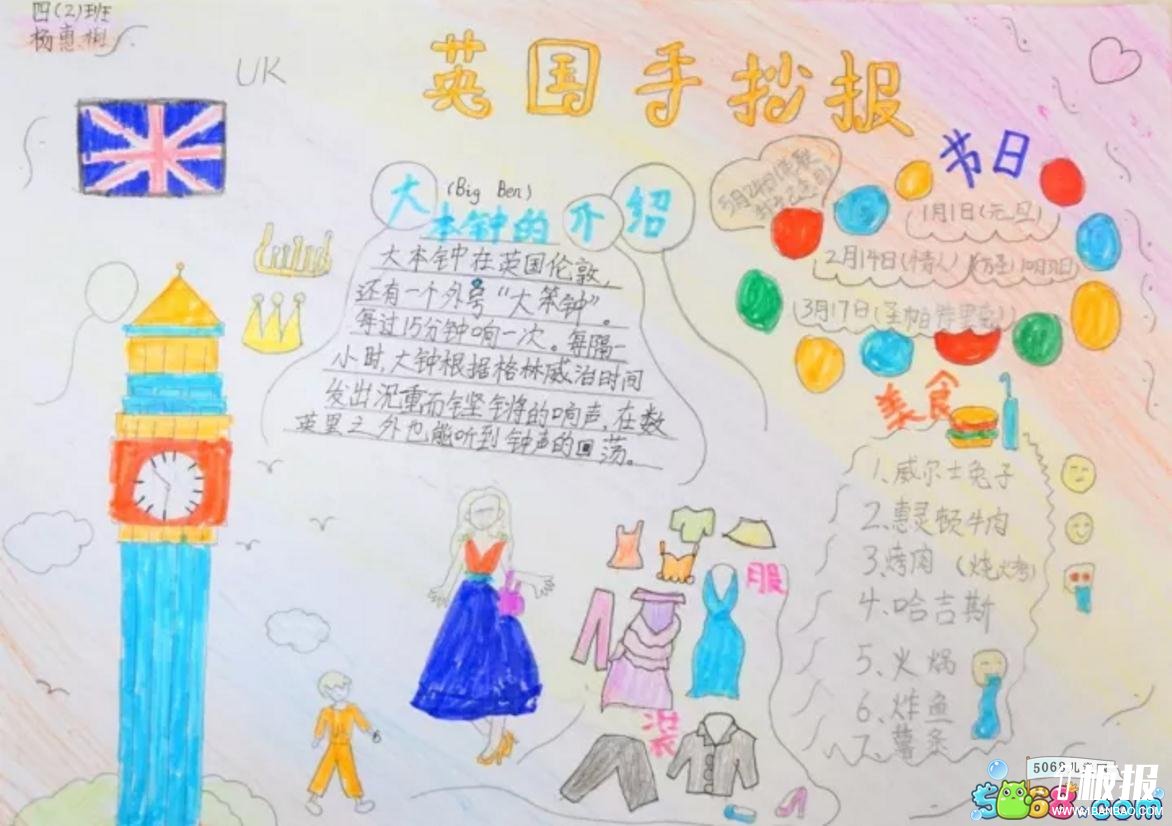 四(2)班
杨惠
UK
英国手抄报
大本钟的介绍
(Big Ben)
大本钟在英国伦敦,
还有一个外号“大笨钟”。
每过15分钟响一次。每隔一
小时,大钟根据格林威治时间
发出沉重而铿锵的响声,在数
英里之外也能听到钟声的回荡。
节日
5月24日
1月1日(元旦)
2月14日(情人)
3月17日(圣帕特里
美食
1、威尔士兔子
2、惠灵顿牛肉
3、烤肉(炖烤)
4、哈吉斯
5、火焗
6、炸鱼
7、薯条
服
装
5068儿童网
5068.com
板报
WWW.BANBAO.COM